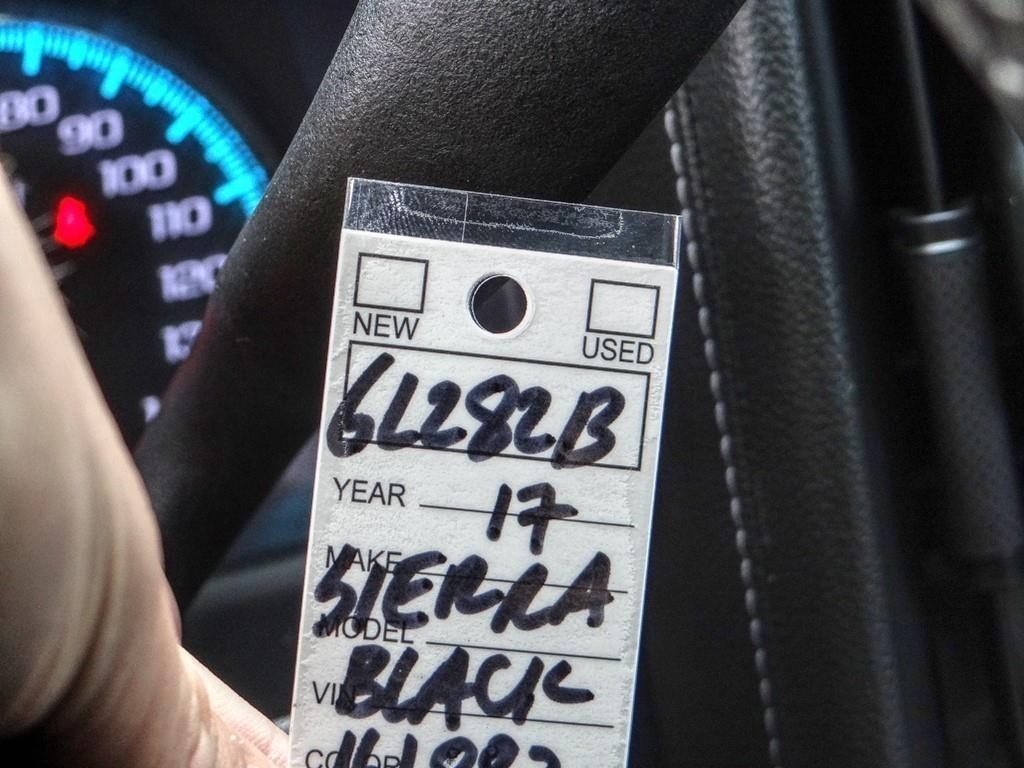 80
90
100
110
120
NEW
USED
6L282B
YEAR 17
MAKE
SIERRA
MODEL
BLACK
VIN
COLOR